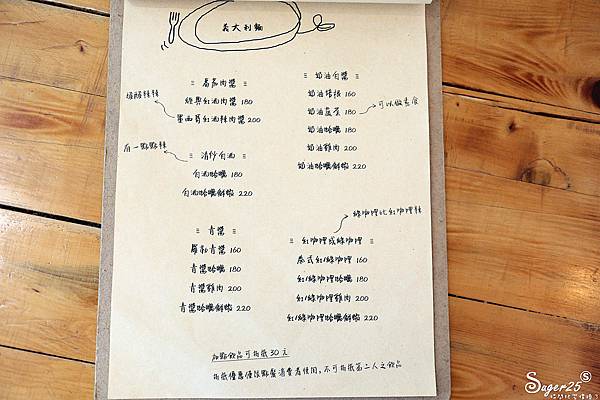 義大利麵
≡ 蕃茄肉醬 ≡
經典紅酒肉醬 180
墨西哥紅酒辣肉醬 200
酸酸辣辣
≡ 清炒白酒 ≡
有一點點辣
白酒蛤蠣 180
白酒蛤蠣鮮蝦 220
≡ 青醬 ≡
羅勒青醬 160
青醬蛤蠣 180
青醬雞肉 200
青醬蛤蠣鮮蝦 220
≡ 奶油白醬 ≡
奶油培根 160
奶油蔬菜 180
可以做素食
奶油蛤蠣 180
奶油雞肉 200
奶油蛤蠣鮮蝦 220
綠咖哩比紅咖哩辣
≡ 紅咖哩或綠咖哩 ≡
泰式紅/綠咖哩 160
紅/綠咖哩蛤蠣 180
紅/綠咖哩雞肉 200
紅/綠咖哩蛤蠣鮮蝦 220
加點飲品可折抵 30 元
折抵優惠僅限點餐消費者使用，不可折抵第二人之飲品
Suger25